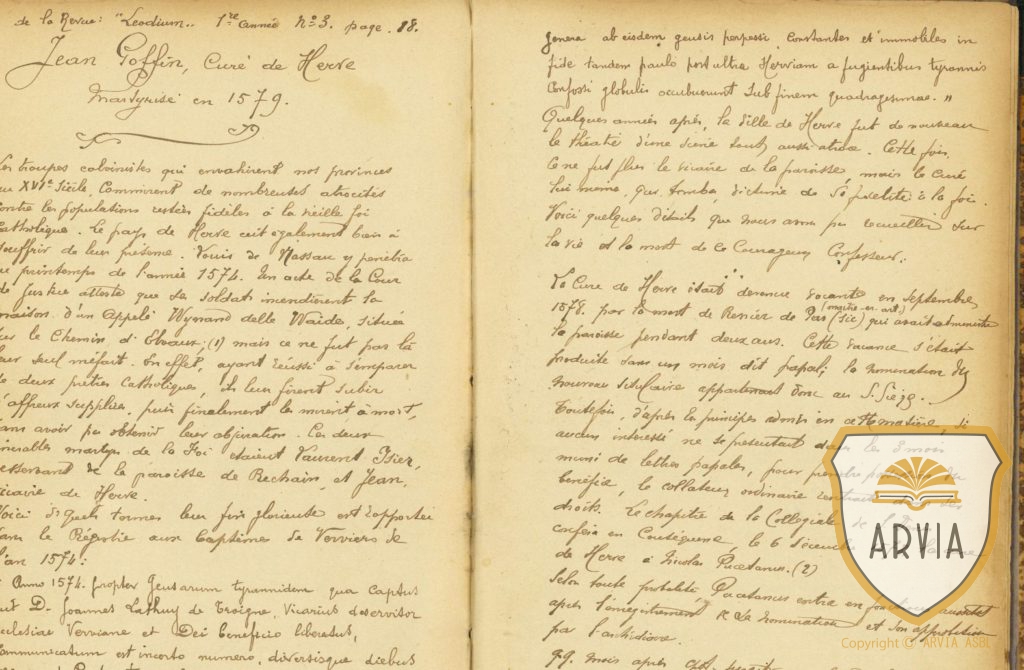 de la Revue: "Leodium.. 1re année No 3. page. 18.
Jean Goffin, Curé de Herve
Martyrisé en 1579.
Les troupes calvinistes qui envahirent nos provinces
au XVIe Siècle, Commirent de nombreuses atrocités
contre les populations restées fidèles à la vieille foi
Catholique. Le pays de Herve eut également bien à
souffrir de leur présence. Louis de Nassau y pénétra
au printemps de l'année 1574. Un acte de la Cour
de Justice atteste que ses soldats incendièrent la
maison d'un Appelé Wynand delle Waide, située
sur le Chemin d'Elvaux; (1) mais ce ne fut pas là
leur seul méfait. En effet, ayant réussi à s'emparer
de deux prêtres Catholiques, ils leur firent subir
d'affreux supplices, puis finalement les mirent à mort,
sans avoir pu obtenir leur abjuration. Ces deux
vénérables martyrs de la Foi étaient Laurent
desservant de la paroisse de Rechain, et Jean,
vicaire de Herve.
Voici en quels termes leur fin glorieuse est rapportée
dans le Registre aux Baptêmes de Verviers de
l'an 1574:
Anno 1574. propter Geusarum tyrannidem qua Captus
fuit D. Joannes Lathuy de Troigne, Vicarius deservitor
Ecclesiae Verviane et Dei beneficio liberatus,
Communicatum est incerto numero, diversisque diebus
genera ab eisdem geusis perpessi Constantes et immobiles in
fide tandem paulo post ultra Herviam a fugientibus tyrannis
Confossi globulis occubuerunt sub finem quadragesimae. "
Quelques années après, la ville de Herve fut de nouveau
le théâtre d'une scène tout aussi atroce. Cette fois,
Ce ne fut plus le vicaire de la paroisse, mais le Curé
lui même, qui tomba victime de sa fidélité à la foi.
Voici quelques détails que nous avons pu recueillir sur
la vie et la mort de ce Courageux Confesseur.
La Cure de Herve était devenue vacante en Septembre
1578. par la mort de Renier de Pas (Sic) (maître-en-art.) qui avait administré
la paroisse pendant deux ans. Cette vacance s'était
produite dans un mois dit papal; la nomination du
nouveau titulaire appartenait donc au S. Siège.
Toutefois, d'après les principes admis en cette matière, si
aucun intéressé ne se présentait dans les 3 mois
muni de lettres papales, pour prendre du
bénéfice, le collateur ordinaire rentrait
droits. Le chapitre de la Collegiale de
conféra en Conséquence, le 6 Décembre
de Herve à Nicolas Pacetanus. (2)
Selon toute probabilité, Pacetanus entra en fonctions aussitôt
après l'enregistrement de la nomination et son approbation
par l'archidiacre.
mois après
ARVIA
Copyright © ARVIA ASBL